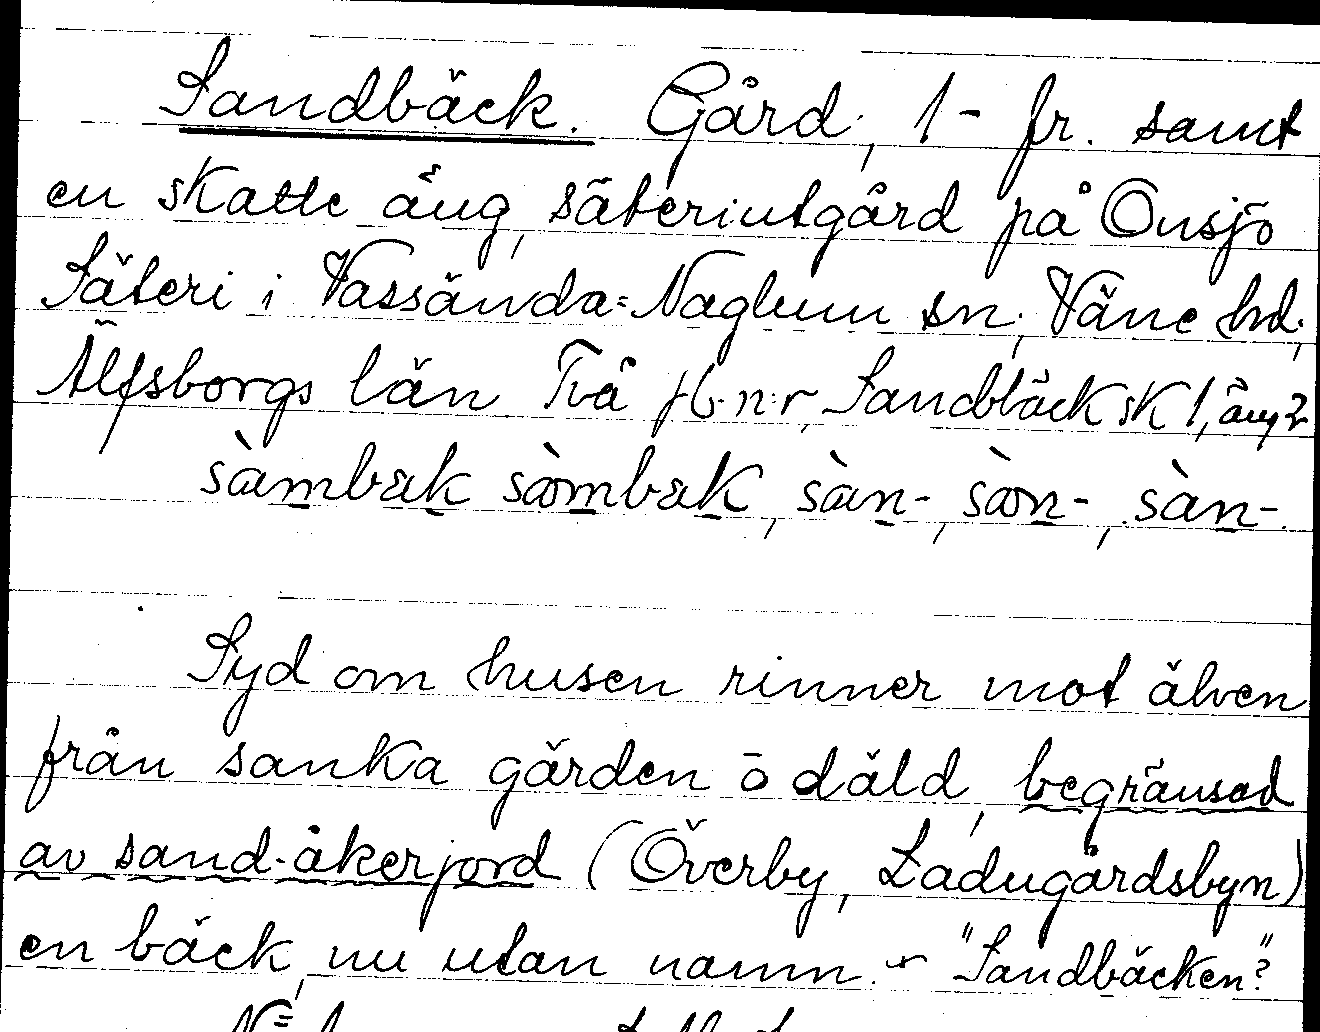 Sandbäck. Gård, 1 - fr. samt
en skatte äng, säteriutgård på Onsjö
Säteri i Vassända=Naglum sn, Väne hd,
Älfsborgs län. Två jb.n:r, Sandbäck sk 1, äng 2
sàmbæk sòmbæk, sàn-, sòn-, sàn-.
Syd om husen rinner mot älven
från sanka gärden o däld, begränsad
av sand-åkerjord (Överby, Ladugårdsbyn)
en bäck, nu utan namn. - "Sandbäcken?"